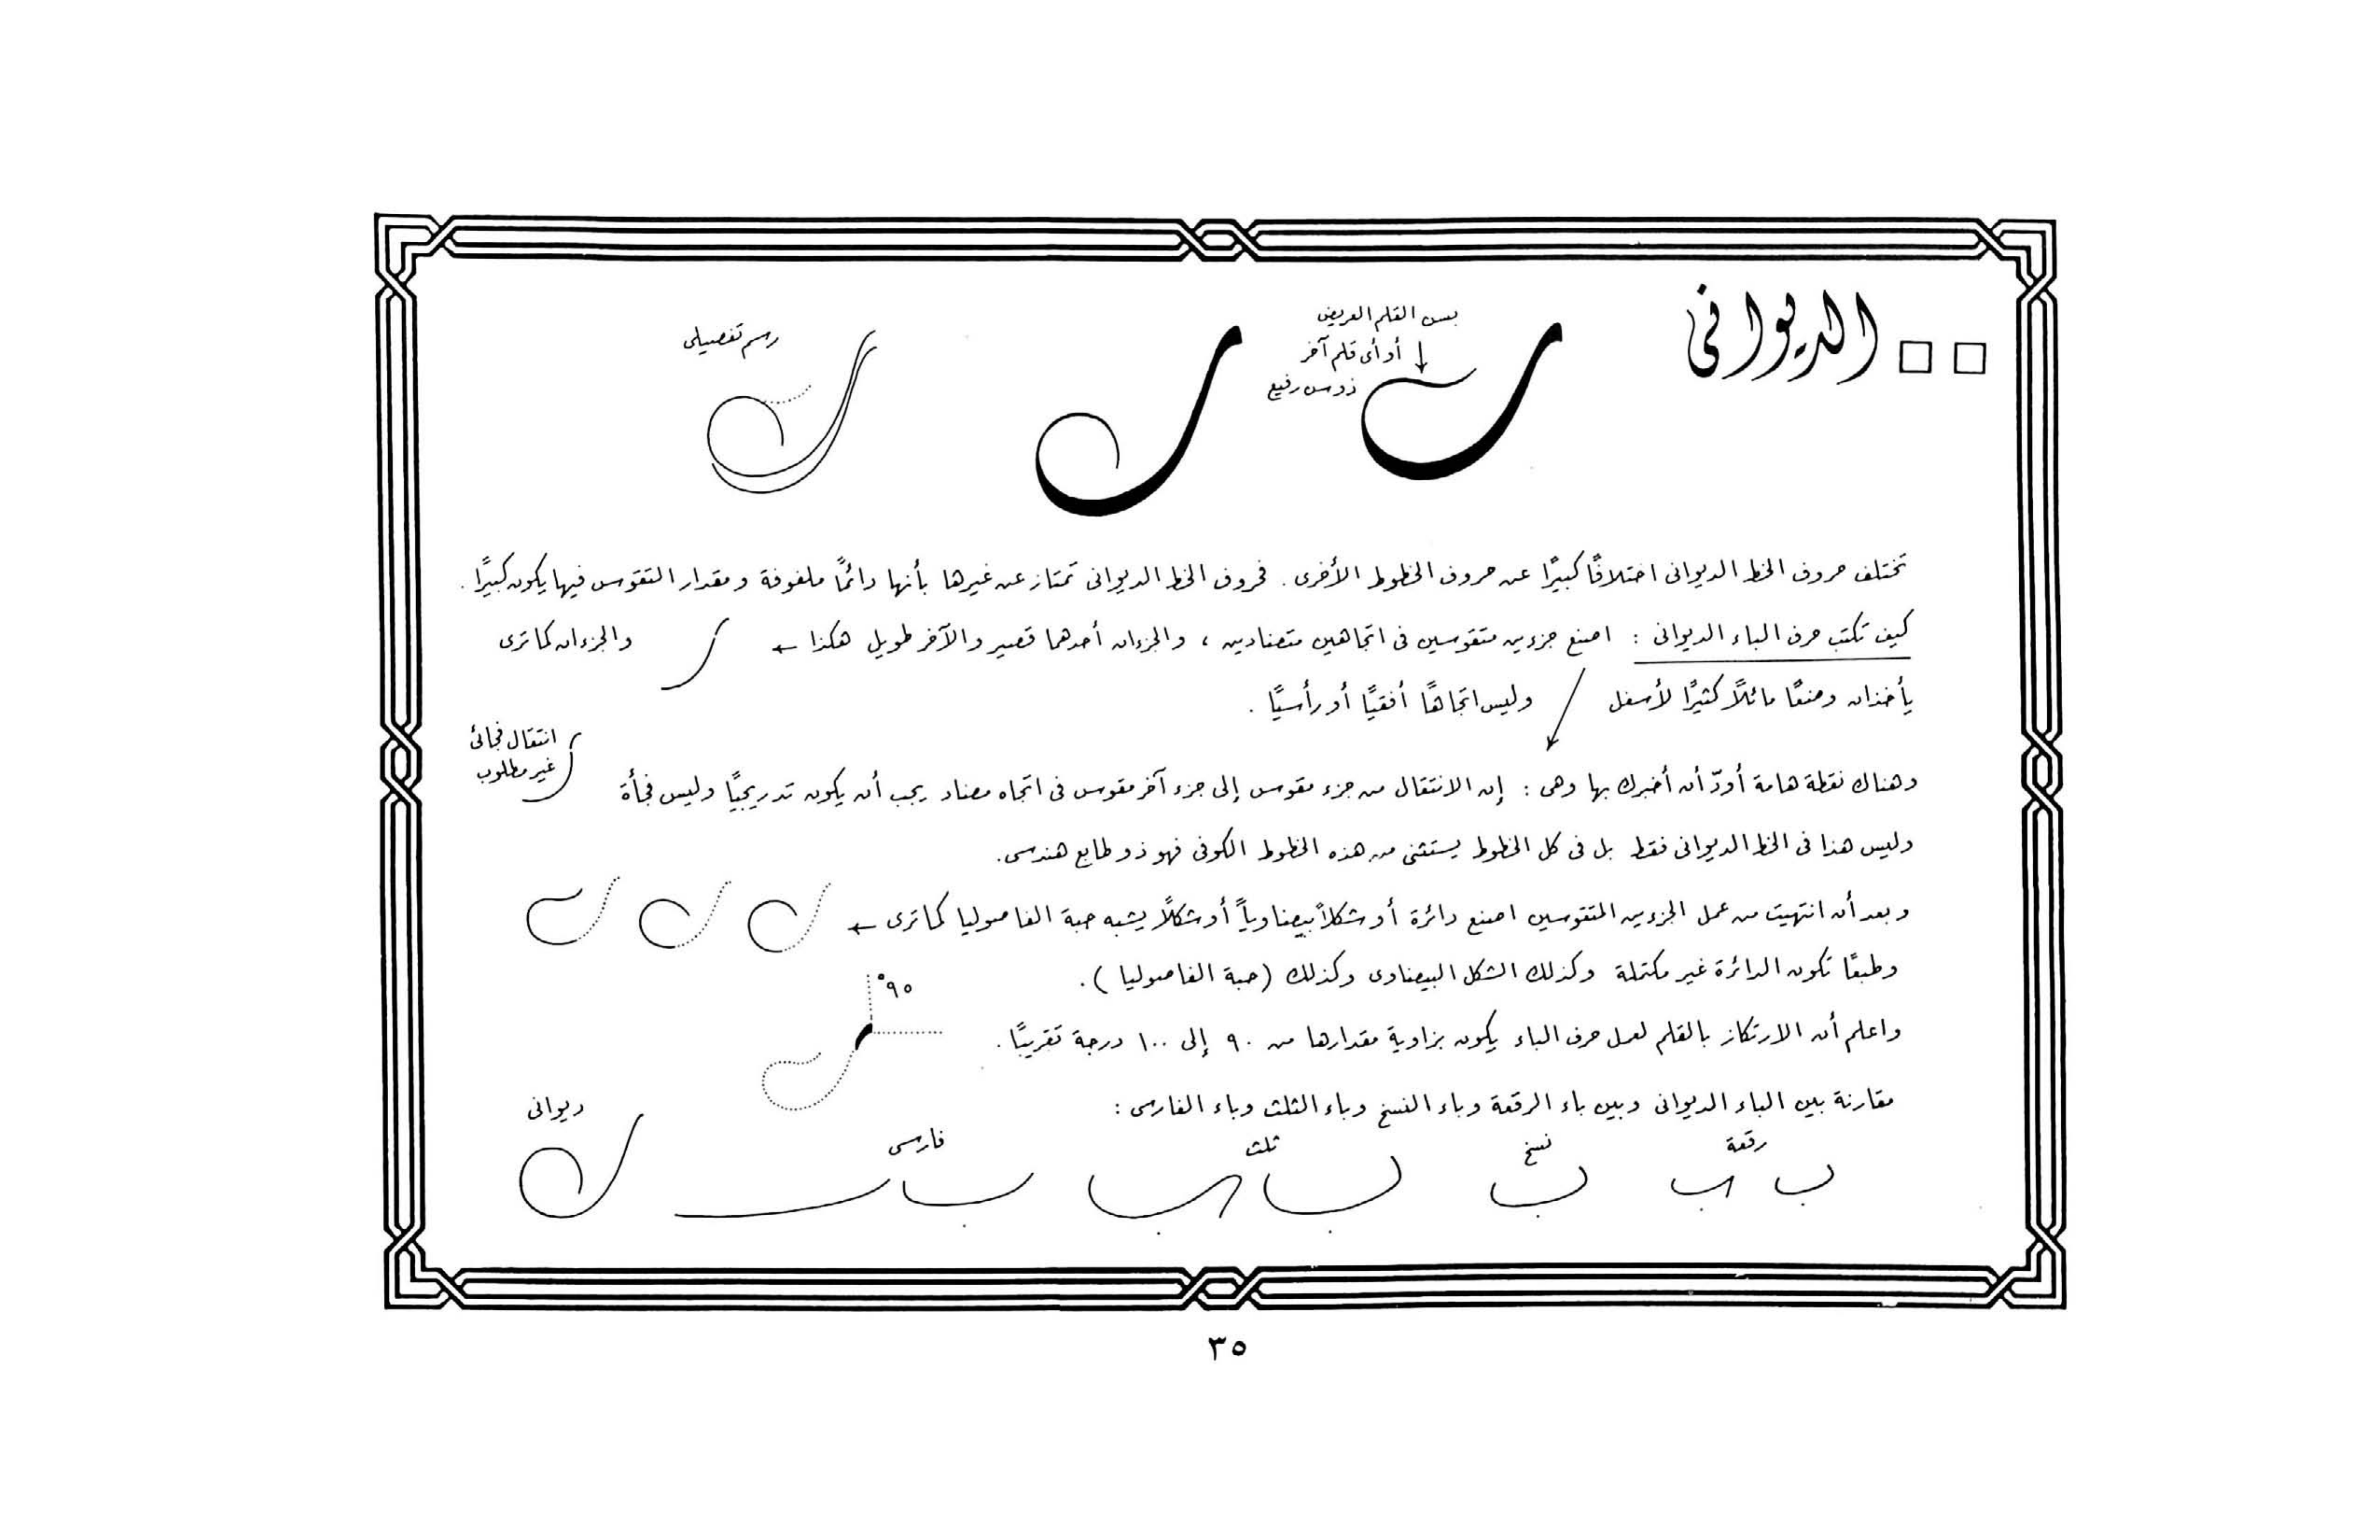 الديوانى
بسن القلم العريض
أو أى قلم آخر
ذو سن رفيع
رسم تفصيلى
تختلف حروف الخط الديوانى اختلافًا كبيرًا عن حروف الخطوط الأخرى . فحروف الخط الديوانى تمتاز عن غيرها بأنها دائمًا ملفوفة ومقدار التقوس فيها يكون كبيرًا .
كيف تكتب حرف الباء الديوانى : اصنع جزءين متقوسين فى اتجاهين متضادين ، والجزءان أحدهما قصير والآخر طويل هكذا ← والجزءان كما ترى
يأخذان وضعًا مائلًا كثيرًا لأسفل وليس اتجاهًا أفقيًا أو رأسيًا .
وهناك نقطة هامة أودّ أن أخبرك بها وهى : إن الانتقال من جزء مقوس إلى جزء آخر مقوس فى اتجاه مضاد يجب أن يكون تدريجيًا وليس فجأة
انتقال فجائى
غير مطلوب
وليس هذا فى الخط الديوانى فقط بل فى كل الخطوط يستثنى من هذه الخطوط الكوفى فهو ذو طابع هندسى.
وبعد أن انتهيت من عمل الجزءين المتقوسين اصنع دائرة أو شكلاً بيضاوياً أو شكلًا يشبه حبة الفاصوليا كما ترى ←
وطبعًا تكون الدائرة غير مكتملة وكذلك الشكل البيضاوى وكذلك (حبة الفاصوليا ) .
٩٥°
واعلم أن الارتكاز بالقلم لعمل حرف الباء يكون بزاوية مقدارها من ٩٠ إلى ١٠٠ درجة تقريبًا .
مقارنة بين الباء الديوانى وبين باء الرقعة وباء النسخ وباء الثلث وباء الفارسى :
رقعة نسخ ثلث فارسى ديوانى
٣٥